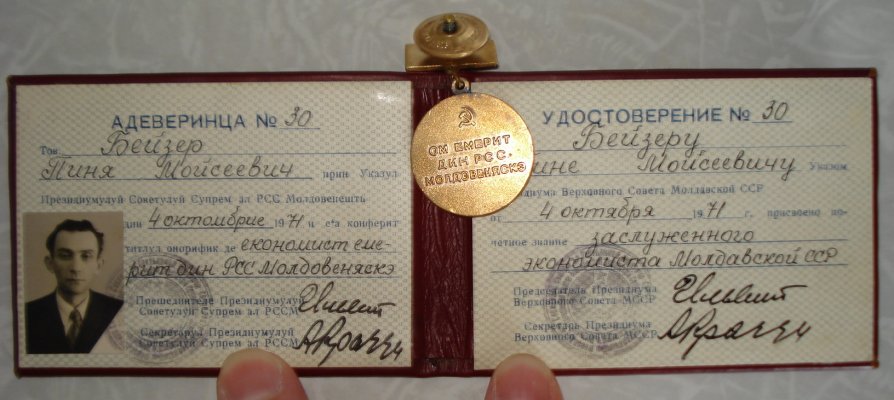 АДЕВЕРИНЦА № 30
Тов. Бейзер
Пиня Мойсеевич прин Указул
Президиумулуй Советулуй Супрем ал РСС Молдовенешть
дин 4 октомбрие 1971 и с'а конферит
титлул онорифик де економист еме-
рит дин РСС Молдовеняскэ
Прешединтеле Президиумулуй
Советулуй Супрем ал РССМ
Секретарул Президиумулуй
Советулуй Супрем ал РССМ
ОМ ЕМЕРИТ
ДИН РСС.
МОЛДОВЕНЯСКЭ
УДОСТОВЕРЕНИЕ № 30
Бейзеру
ине Мойсеевичу Указом
диума Верховного Совета Молдавской ССР
от 4 октября 1971 г. присвоено по-
четное звание заслуженного
экономиста Молдавской ССР
Председатель Президиума
Верховного Совета МССР
Секретарь Президиума
Верховного Совета МССР